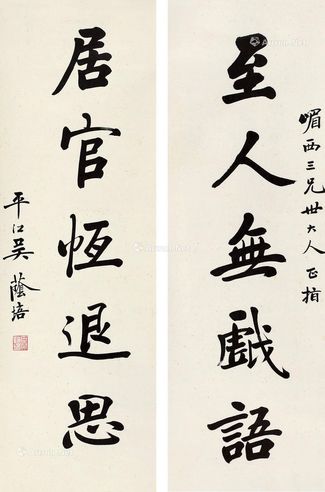 嵋西三兄世大人正指
至人無戲語
居官恆退思
平江吳蔭培